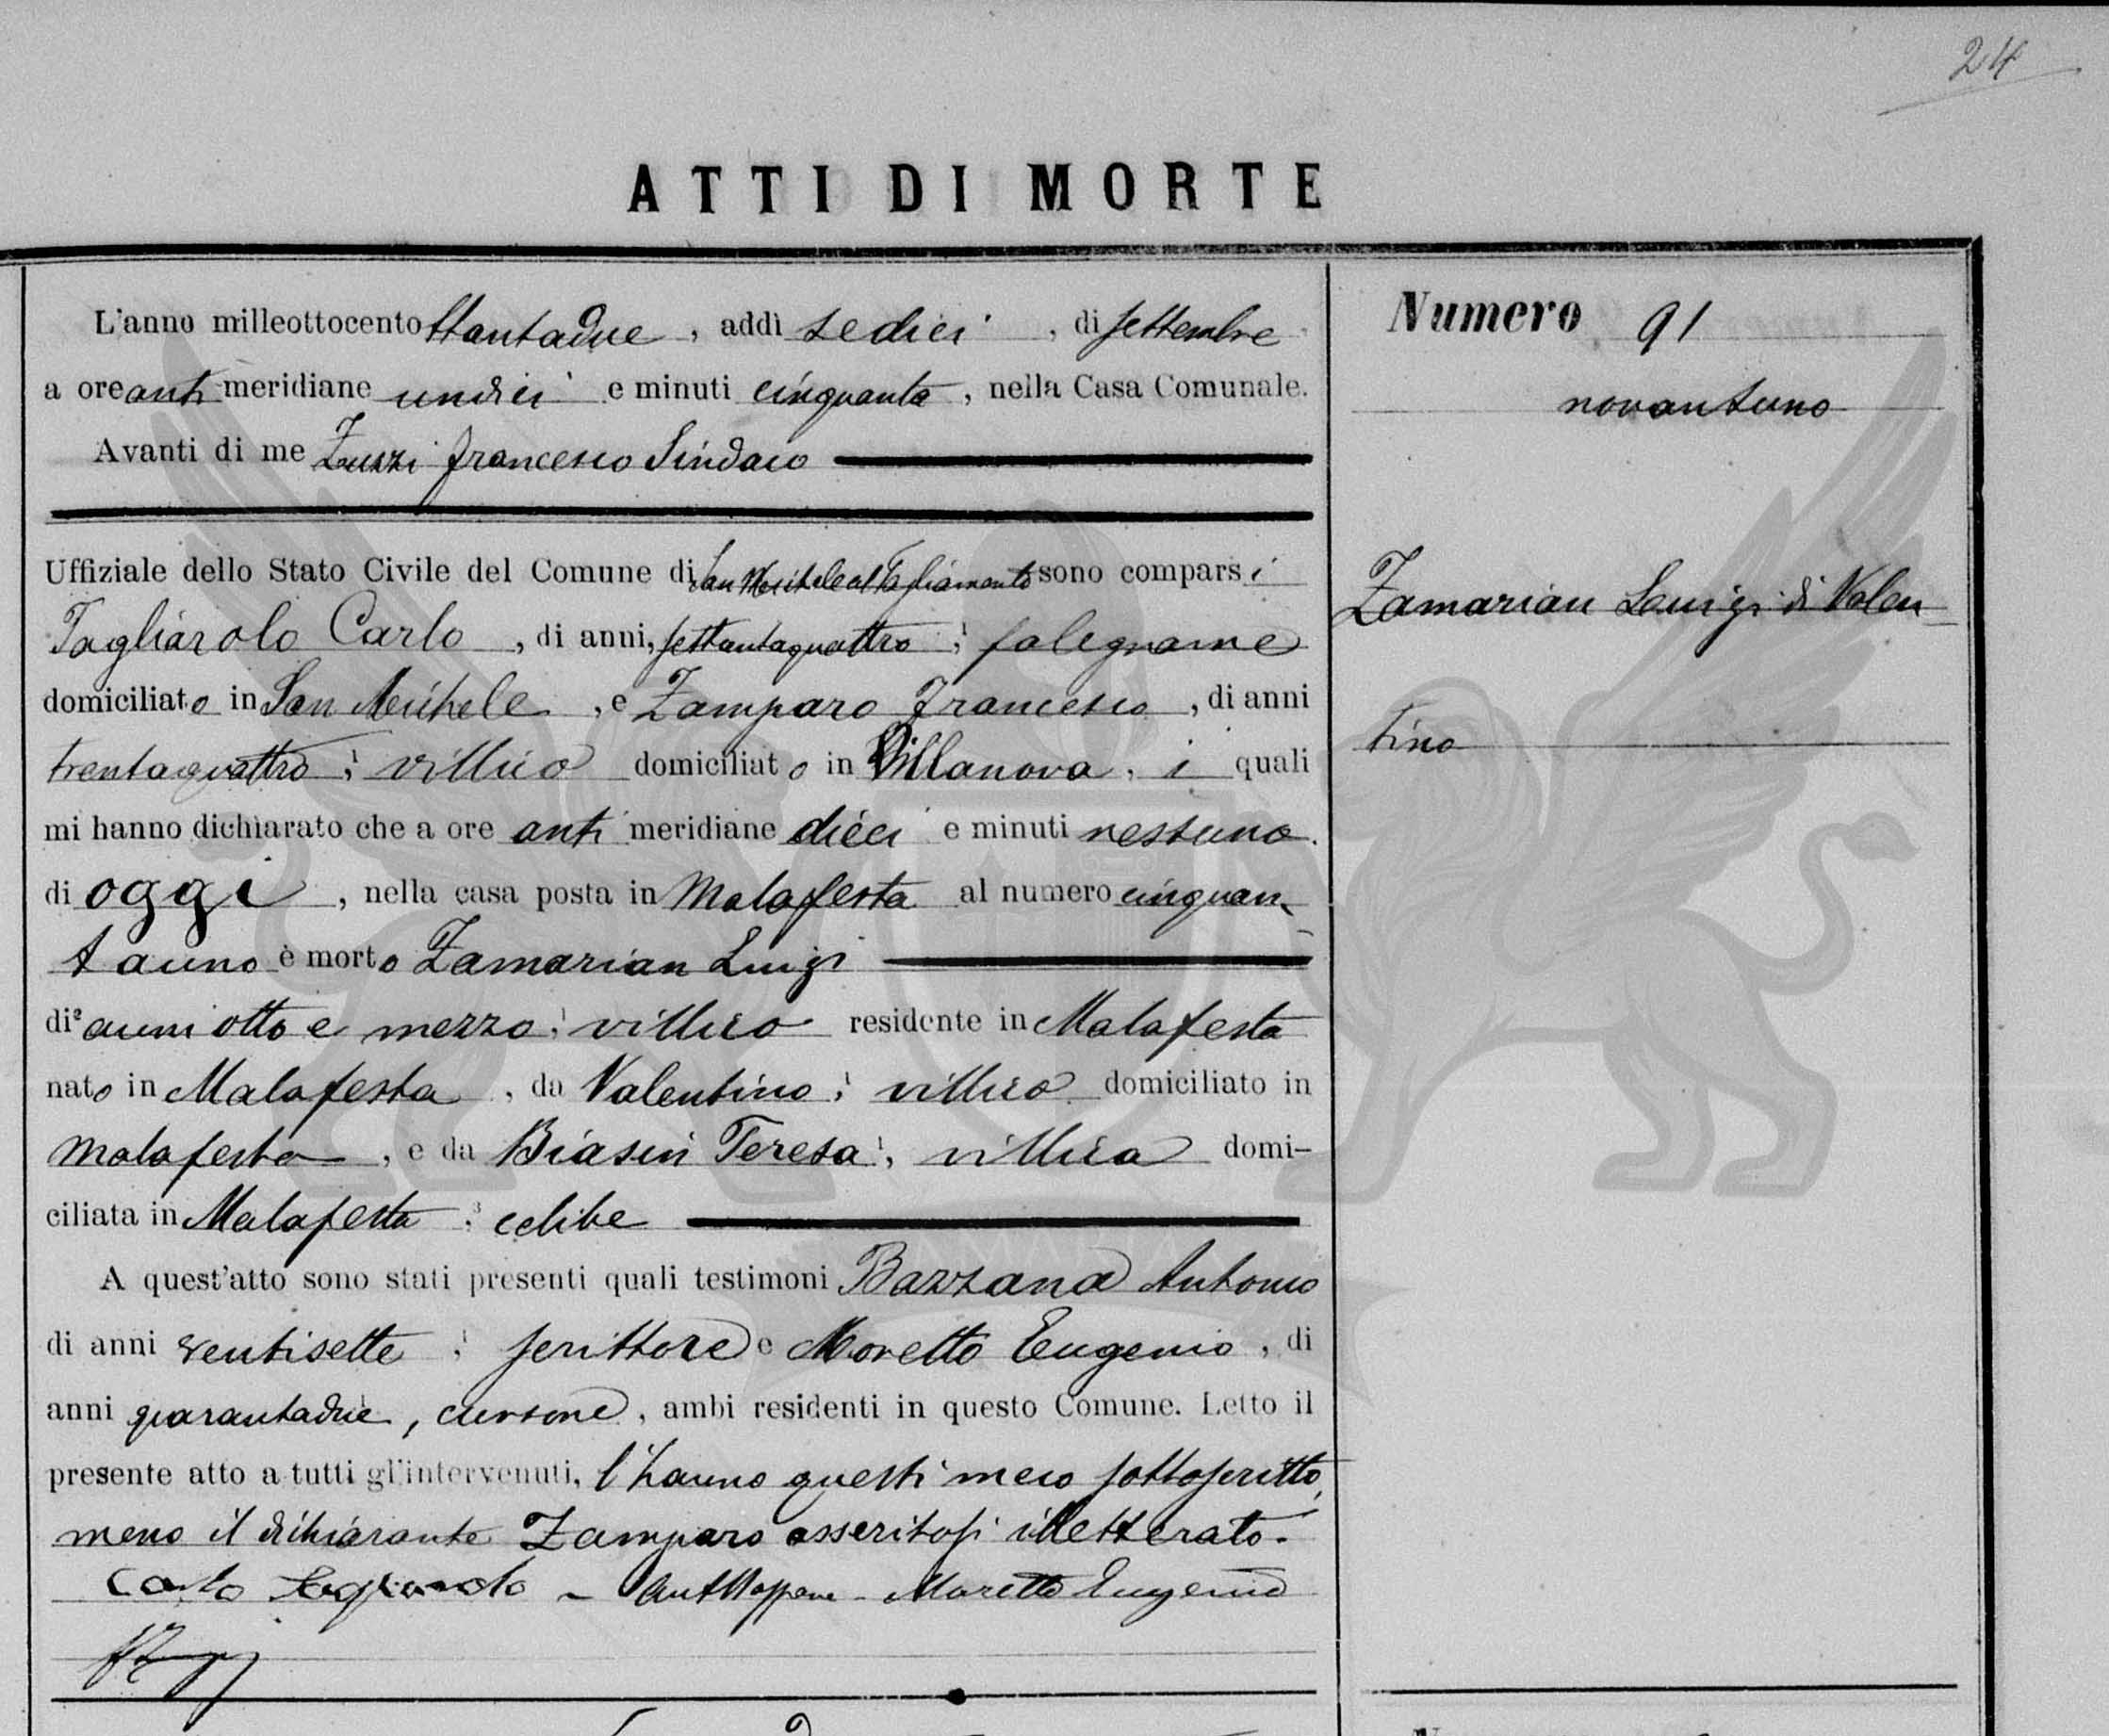 24
ATTI DI MORTE
L'anno milleottocentottantadue, addì sedici, di Settembre
a ore anti meridiane undici e minuti cinquanta, nella Casa Comunale.
Avanti di me Zuzzi Francesco Sindaco
Uffiziale dello Stato Civile del Comune di San Michele al Tagliamento sono comparsi
Tagliarolo Carlo, di anni settantaquattro, falegname
domiciliato in San Michele, e Zamparo Francesco, di anni
trentaquattro, villico domiciliato in Villanova, i quali
mi hanno dichiarato che a ore anti meridiane dieci e minuti nessuno.
di oggi, nella casa posta in Malafesta al numero cinquan-
tauno è morto Zamarian Luigi
di anni otto e mezzo, villico residente in Malafesta
nato in Malafesta, da Valentino, villico domiciliato in
Malafesta, e da Biasin Teresa, villica domi-
ciliata in Malafesta, celibe
A quest'atto sono stati presenti quali testimoni Bazzana Antonio
di anni ventisette, scrittore e Moretto Eugenio, di
anni quarantadue, cursore, ambi residenti in questo Comune. Letto il
presente atto a tutti gl'intervenuti, l'hanno questi meco sottoscritto,
meno il dichiarante Zamparo asseritosi illetterato.
Carlo Tagliarolo - Ant - Moretto Eugenio
Numero 91
novantuno
Zamarian Luigi di Valen
tino